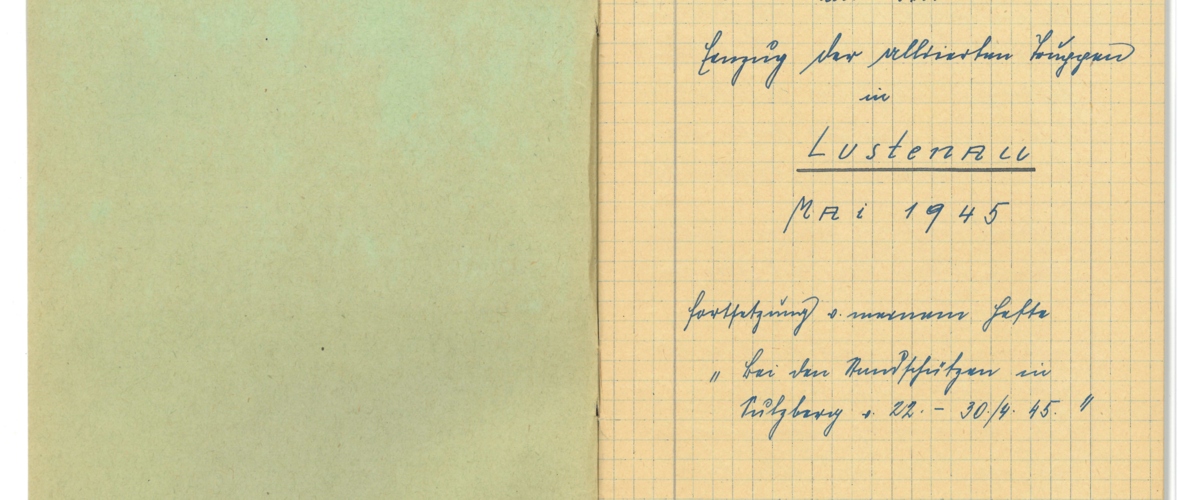 Einzug der alliierten Truppen
in
Lustenau
Mai 1945
Fortsetzung v. meinem Hefte
„ Bei den Standschützen in
Sulzberg v. 22. - 30./4. 45. "